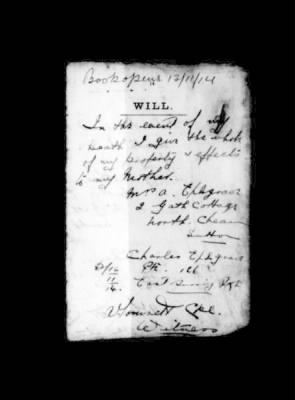 Book opens 12/11/14
WILL.
In the event of my
Death I give the whole
of my property & effects
to my Mother.
Mrs A. Uphgrove
2 Gath Cottage
North Cheam
Sutton
Charles Uphgrove
Pte.
11/16 East Surrey Rgt
Cpl.
Witness